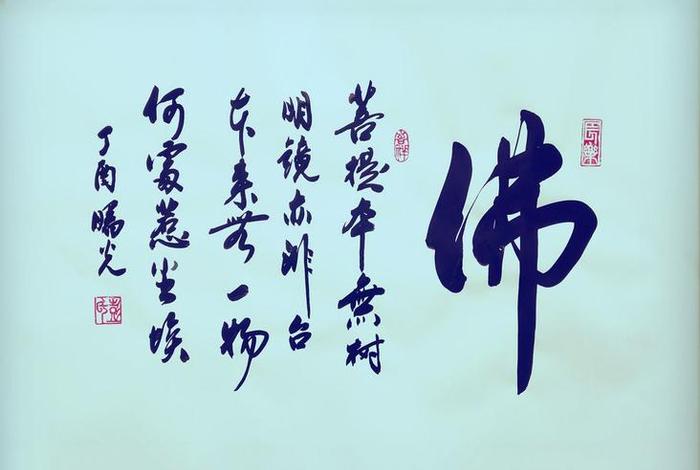 佛
長樂
菩提本無树
明鏡亦非台
本来無一物
何處惹尘埃
丁酉